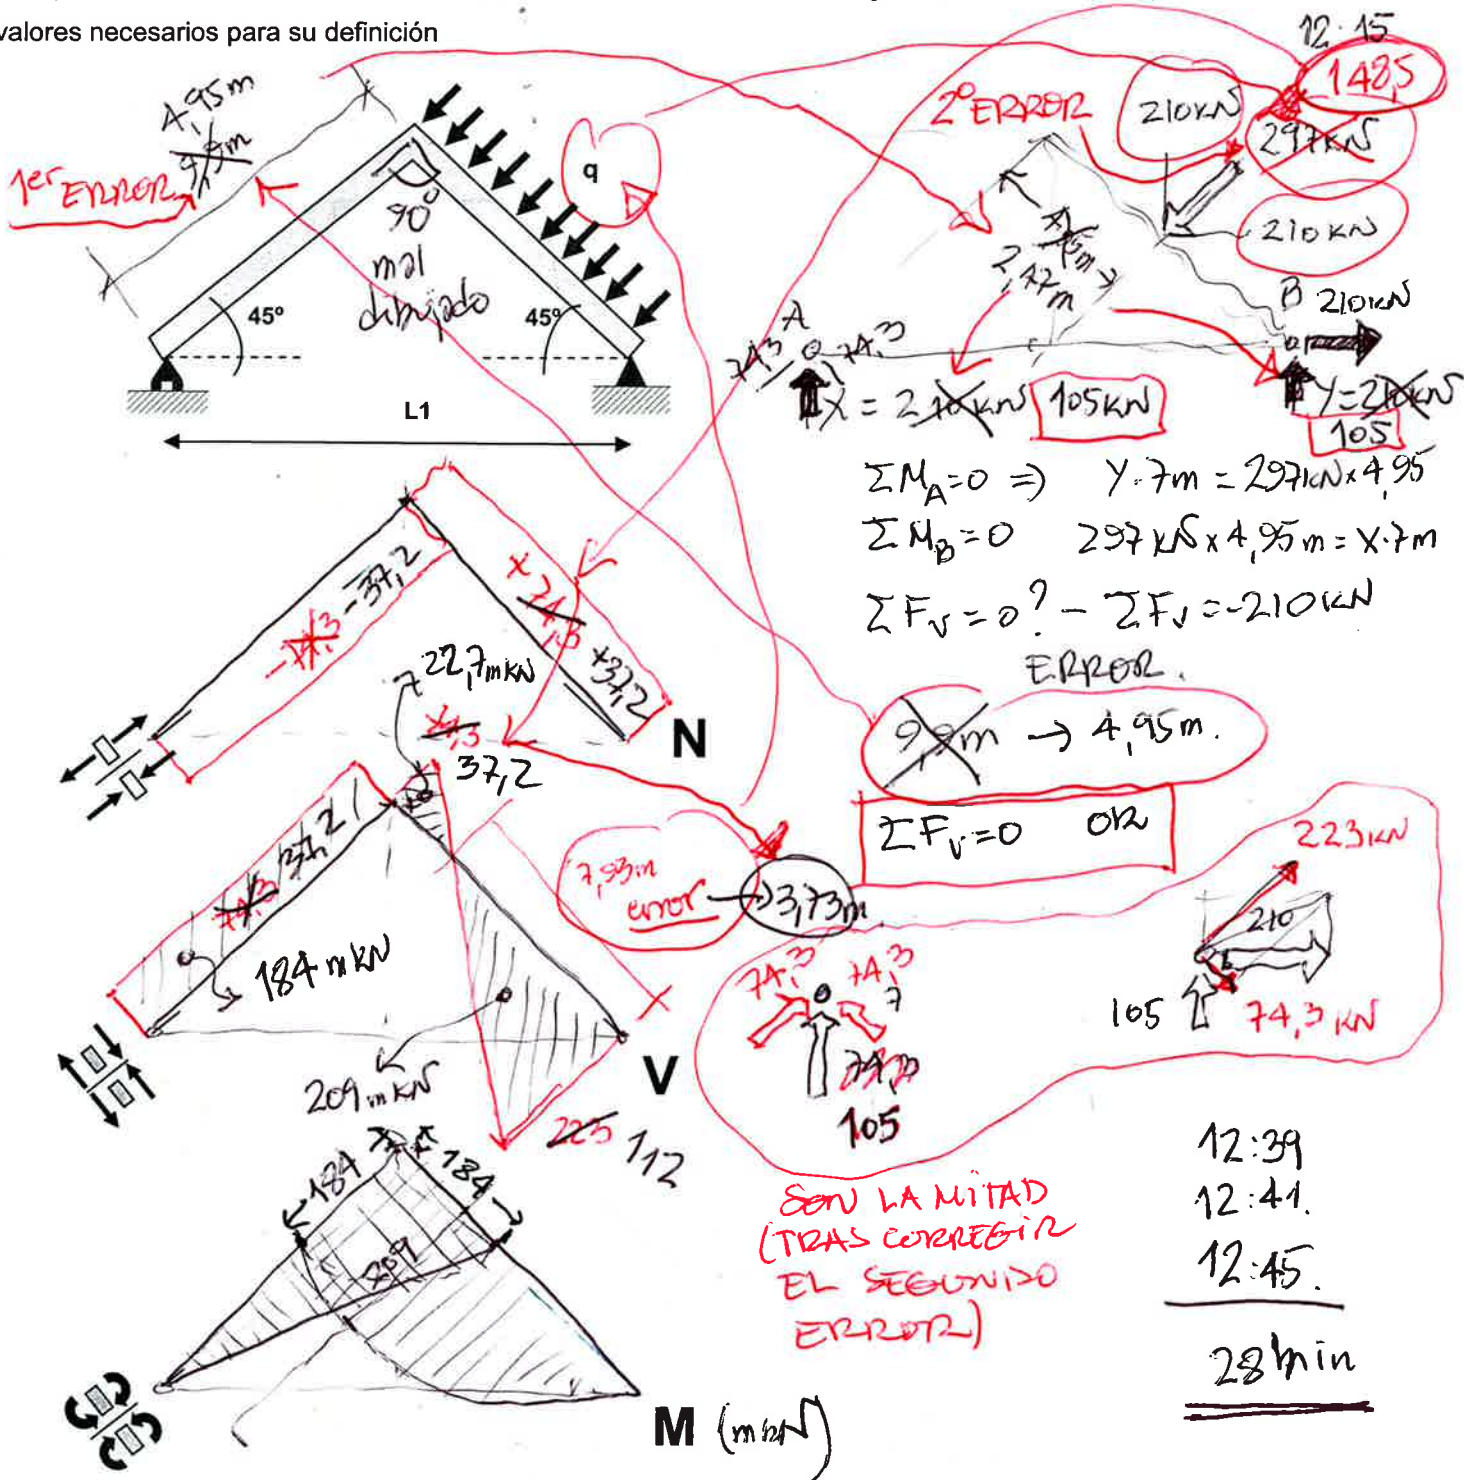 valores necesarios para su definición
12:15
4,95m
9,9m
1er ERROR
90º
mal
dibujado
45º
45º
q
L1
2º ERROR
210KN
148,5
297KN
210 KN
2,47m
A
B
210KN
74,3
74,3
X = 210KN
105KN
Y=210KN
105
ΣM_A=0 => Y·7m = 297KN×4,95
ΣM_B=0 297KN×4,95m = X·7m
ΣF_V=0? - ΣF_V=-210KN
ERROR.
9,9m → 4,95m.
ΣF_V=0 OK
-74,3 -37,2
+74,3 +37,2
N
22,7mKN
74,3
37,2
74,3 37,2
184 mKN
209 mKN
7,93m
error → 3,73m
V
225 112
74,3
74,3
105
223KN
210
105
74,3 KN
SON LA MITAD
(TRAS CORREGIR
EL SEGUNDO
ERROR)
184
184
209
M (mKN)
12:39
12:41.
12:45.
28min